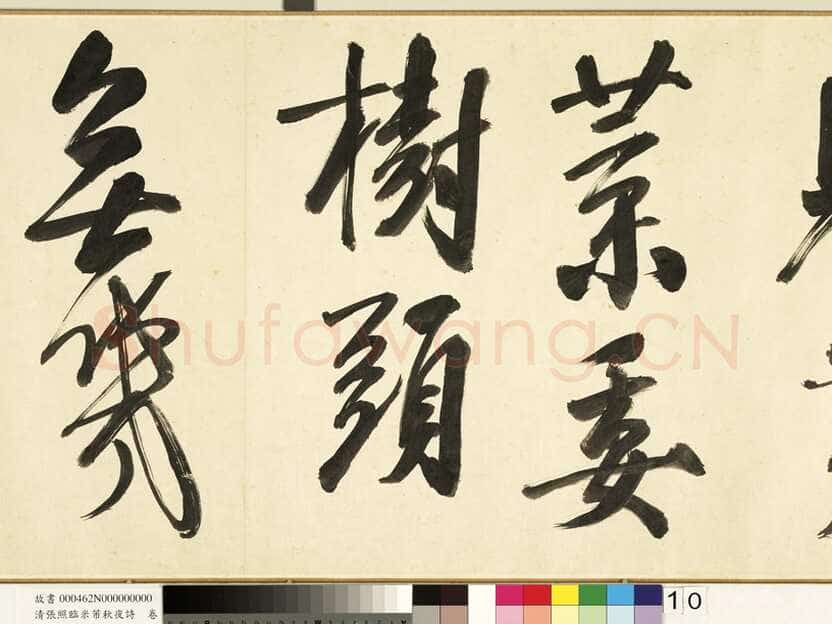 葉委
樹頭
無幾
Shufawang.CN
故書 000462N000000000
清張照臨米芾秋夜詩 卷
10